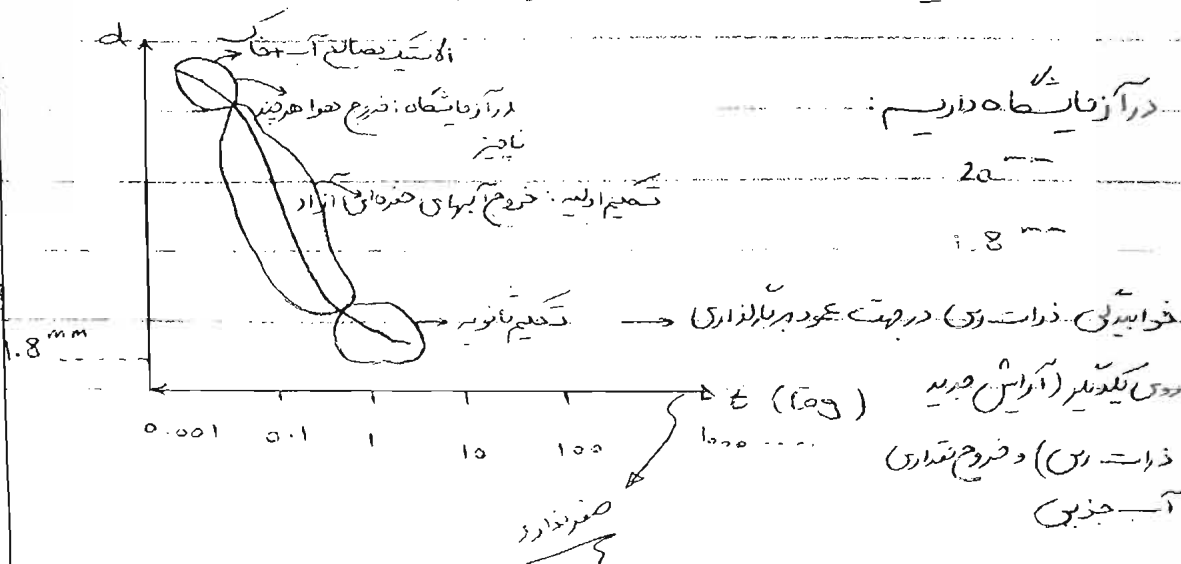 d
الاستیک مصالح آب + خاک
در آزمایشگاه: خروج هوا هرچند
ناچیز
تحکیم اولیه: خروج آبهای حفره‌ای آزاد
تحکیم ثانویه
1.8 mm
t (log)
0.001 0.1 1 10 100 1000 .....
صفر ندارد
در آزمایشگاه داریم:
20 mm
1.8 mm
خوابیدگی ذرات رس در جهت عمود بر بارگذاری
روی یکدیگر (آرایش جدید
ذرات رس) و خروج مقداری
آب جذبی